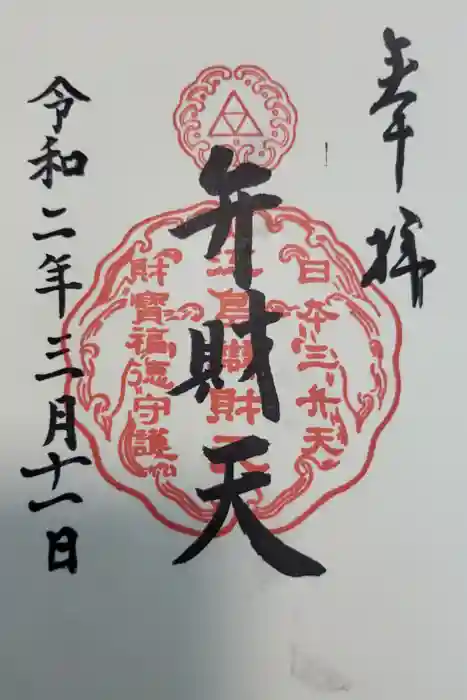 奉拝
日本三弁天
江島弁財天
弁財天
財寶福徳守護
令和二年三月十一日